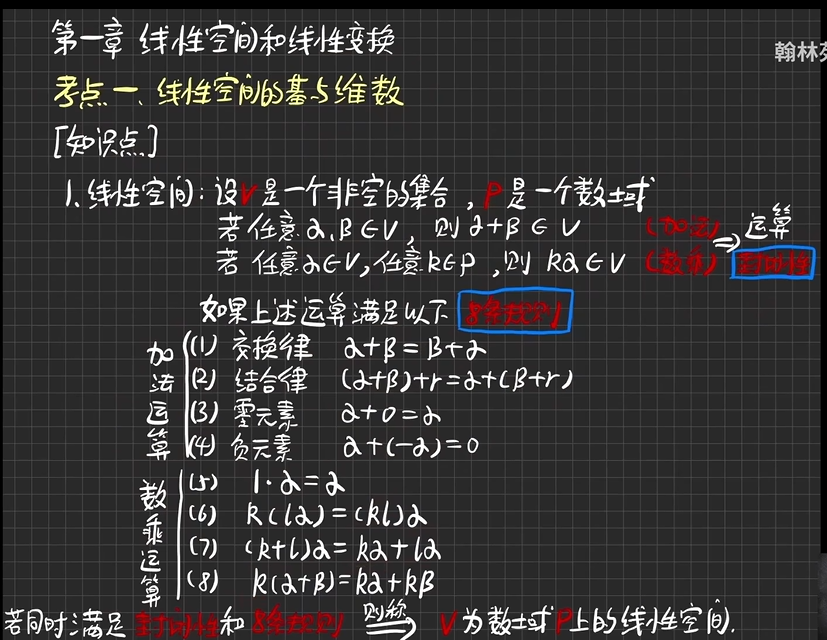 第一章 线性空间和线性变换
翰林苑
考点一、线性空间的基与维数
[知识点]
1.线性空间：设V是一个非空的集合，P是一个数域
若任意α,β∈V，则α+β∈V （加法）
若任意α∈V,任意k∈P，则kα∈V （数乘） ⇒ 运算封闭性
如果上述运算满足以下8条规则
加法运算
(1) 交换律 α+β=β+α
(2) 结合律 (α+β)+r=α+(β+r)
(3) 零元素 α+0=α
(4) 负元素 α+(-α)=0
数乘运算
(5) 1·α=α
(6) k(lα)=(kl)α
(7) (k+l)α=kα+lα
(8) k(α+β)=kα+kβ
若同时满足封闭性和8条规则 则称⇒ V为数域P上的线性空间.